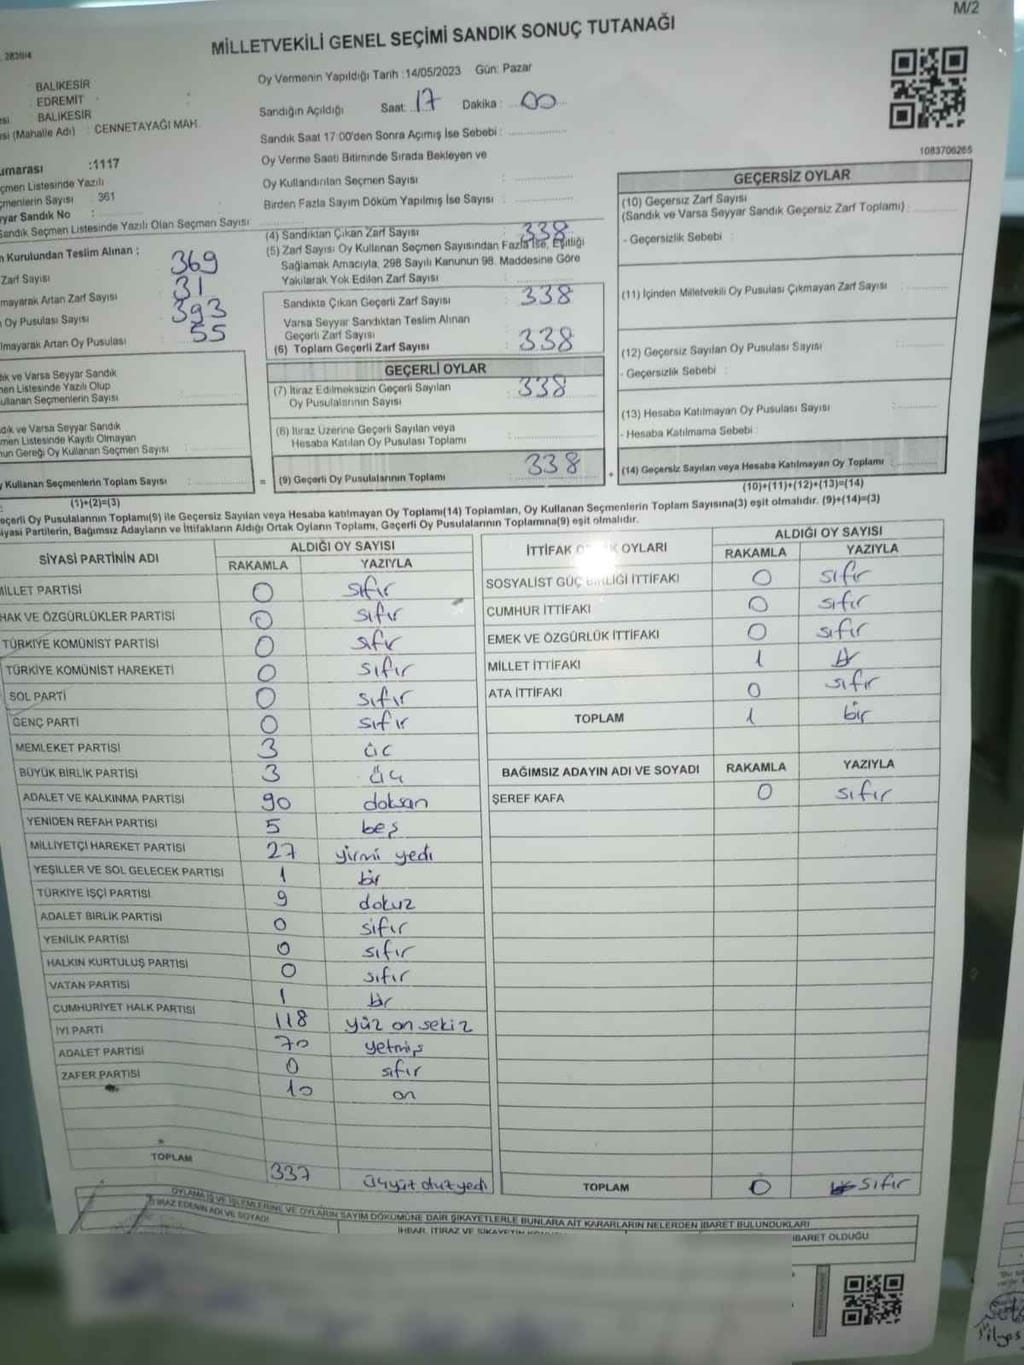 M/2
283914
MİLLETVEKİLİ GENEL SEÇİMİ SANDIK SONUÇ TUTANAĞI
BALIKESİR
EDREMİT
BALIKESİR
(Mahalle Adı) : CENNETAYAĞI MAH.
:1117
Seçmen Listesinde Yazılı
Seçmenlerin Sayısı : 361
Sandık No :
Sandık Seçmen Listesinde Yazılı Olan Seçmen Sayısı
Kurulundan Teslim Alınan :
Zarf Sayısı 369
Artan Zarf Sayısı 31
Oy Pusulası Sayısı 393
Artan Oy Pusulası 55
ve Varsa Seyyar Sandık
Listesinde Yazılı Olup
Kullanan Seçmenlerin Sayısı :
ve Varsa Seyyar Sandık
Listesinde Kayıtlı Olmayan
Gereği Oy Kullanan Seçmen Sayısı :
Kullanan Seçmenlerin Toplam Sayısı :
(1)+(2)=(3)
Oy Vermenin Yapıldığı Tarih :14/05/2023 Gün: Pazar
Sandığın Açıldığı Saat: 17 Dakika : 00
Sandık Saat 17:00'den Sonra Açımış İse Sebebi :
Oy Verme Saati Bitiminde Sırada Bekleyen ve
Oy Kullandırılan Seçmen Sayısı :
Birden Fazla Sayım Döküm Yapılmış İse Sayısı :
(4) Sandıktan Çıkan Zarf Sayısı : 338
(5) Zarf Sayısı Oy Kullanan Seçmen Sayısından Fazla İse, Eşitliği
Sağlamak Amacıyla, 298 Sayılı Kanunun 98. Maddesine Göre
Yakılarak Yok Edilen Zarf Sayısı :
Sandıkta Çıkan Geçerli Zarf Sayısı : 338
Varsa Seyyar Sandıktan Teslim Alınan
Geçerli Zarf Sayısı :
(6) Toplam Geçerli Zarf Sayısı : 338
GEÇERLİ OYLAR
(7) İtiraz Edilmeksizin Geçerli Sayılan
Oy Pusulalarının Sayısı : 338
(8) İtiraz Üzerine Geçerli Sayılan veya
Hesaba Katılan Oy Pusulası Toplamı :
= (9) Geçerli Oy Pusulalarının Toplamı : 338 +
1083706265
GEÇERSİZ OYLAR
(10) Geçersiz Zarf Sayısı
(Sandık ve Varsa Seyyar Sandık Geçersiz Zarf Toplamı) :
- Geçersizlik Sebebi :
(11) İçinden Milletvekili Oy Pusulası Çıkmayan Zarf Sayısı :
(12) Geçersiz Sayılan Oy Pusulası Sayısı :
- Geçersizlik Sebebi :
(13) Hesaba Katılmayan Oy Pusulası Sayısı :
- Hesaba Katılmama Sebebi :
(14) Geçersiz Sayılan veya Hesaba Katılmayan Oy Toplamı :
(10)+(11)+(12)+(13)=(14)
Geçerli Oy Pusulalarının Toplamı(9) ile Geçersiz Sayılan veya Hesaba katılmayan Oy Toplamı(14) Toplamları, Oy Kullanan Seçmenlerin Toplam Sayısına(3) eşit olmalıdır. (9)+(14)=(3)
Siyasi Partilerin, Bağımsız Adayların ve İttifakların Aldığı Ortak Oyların Toplamı, Geçerli Oy Pusulalarının Toplamına(9) eşit olmalıdır.
SİYASİ PARTİNİN ADI ALDIĞI OY SAYISI
RAKAMLA YAZIYLA
MİLLET PARTİSİ 0 sıfır
HAK VE ÖZGÜRLÜKLER PARTİSİ 0 sıfır
TÜRKİYE KOMÜNİST PARTİSİ 0 sıfır
TÜRKİYE KOMÜNİST HAREKETİ 0 sıfır
SOL PARTİ 0 sıfır
GENÇ PARTİ 0 sıfır
MEMLEKET PARTİSİ 3 üç
BÜYÜK BİRLİK PARTİSİ 3 üç
ADALET VE KALKINMA PARTİSİ 90 doksan
YENİDEN REFAH PARTİSİ 5 beş
MİLLİYETÇİ HAREKET PARTİSİ 27 yirmi yedi
YEŞİLLER VE SOL GELECEK PARTİSİ 1 bir
TÜRKİYE İŞÇİ PARTİSİ 9 dokuz
ADALET BİRLİK PARTİSİ 0 sıfır
YENİLİK PARTİSİ 0 sıfır
HALKIN KURTULUŞ PARTİSİ 0 sıfır
VATAN PARTİSİ 1 bir
CUMHURİYET HALK PARTİSİ 118 yüz on sekiz
İYİ PARTİ 70 yetmiş
ADALET PARTİSİ 0 sıfır
ZAFER PARTİSİ 10 on
TOPLAM 337 üçyüz otuzyedi
İTTİFAK OYLARI ALDIĞI OY SAYISI
RAKAMLA YAZIYLA
SOSYALİST GÜÇ BİRLİĞİ İTTİFAKI 0 sıfır
CUMHUR İTTİFAKI 0 sıfır
EMEK VE ÖZGÜRLÜK İTTİFAKI 0 sıfır
MİLLET İTTİFAKI 1 bir
ATA İTTİFAKI 0 sıfır
TOPLAM 1 bir
BAĞIMSIZ ADAYIN ADI VE SOYADI RAKAMLA YAZIYLA
ŞEREF KAFA 0 sıfır
TOPLAM 0 sıfır
OYLAMA İŞ VE İŞLEMLERİNE VE OYLARIN SAYIM DÖKÜMÜNE DAİR ŞİKAYETLERLE BUNLARA AİT KARARLARIN NELERDEN İBARET BULUNDUKLARI
İTİRAZ EDENİN ADI VE SOYADI
İHBAR, İTİRAZ VE ŞİKAYETİN
İBARET OLDUĞU